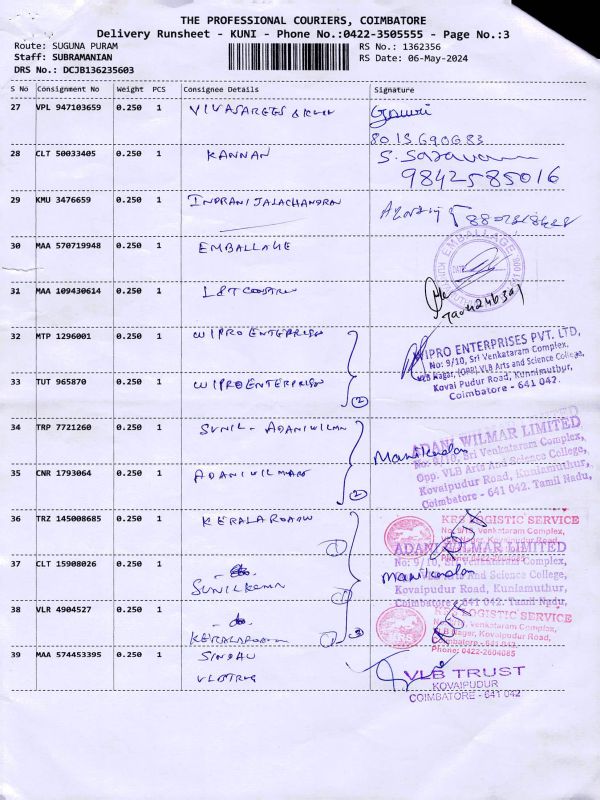 THE PROFESSIONAL COURIERS, COIMBATORE
Delivery Runsheet - KUNI - Phone No.:0422-3505555 - Page No.:3
Route: SUGUNA PURAM
RS No.: 1362356
Staff: SUBRAMANIAN
RS Date: 06-May-2024
DRS No.: DCJB136235603
S No Consignment No Weight PCS Consignee Details Signature
27 VPL 947103659 0.250 1
28 CLT 50033405 0.250 1 KANNAN
9842585016
29 KMU 3476659 0.250 1 INDRANI JALACHANDRAN
30 MAA 570719948 0.250 1 EMBALLAGE
EMBALLAGE
DATE
31 MAA 109430614 0.250 1 L&T
32 MTP 1296001 0.250 1 WIPRO ENTERPRISE
WIPRO ENTERPRISES PVT. LTD,
No: 9/10, Sri Venkataram Complex,
VLB Nagar, (OPP) VLB Arts and Science College,
Kovai Pudur Road, Kunnimuthur,
Coimbatore - 641 042.
33 TUT 965870 0.250 1 WIPRO ENTERPRISE
2
34 TRP 7721260 0.250 1 SUNIL - ADANI WILMAR
Manikandan
ADANI WILMAR LIMITED
No: 9/10, Sri Venkataram Complex,
Opp. VLB Arts And Science College,
Kovaipudur Road, Kuniamuthur,
Coimbatore - 641 042. Tamil Nadu,
35 CNR 1793064 0.250 1 ADANI WILMAR
2
36 TRZ 145008685 0.250 1 KERALA ROADW
1
KRS LOGISTIC SERVICE
ADANI WILMAR LIMITED
No: 9/10, Sri Venkataram Complex,
Manikandan
VLB Arts And Science College,
Kovaipudur Road, Kuniamuthur,
Coimbatore - 641 042. Tamil Nadu,
37 CLT 15908026 0.250 1
SUNIL KUMAR
1
38 VLR 4904527 0.250 1
KERALA ROADW
1
3
KRS LOGISTIC SERVICE
No: 9/10, Venkataram Complex,
VLB Nagar, Kovaipudur Road,
Coimbatore - 641 042.
Phone: 0422-2604085
KRS
39 MAA 574453395 0.250 1
VLB TRUST
VLB TRUST
KOVAIPUDUR
COIMBATORE - 641 042